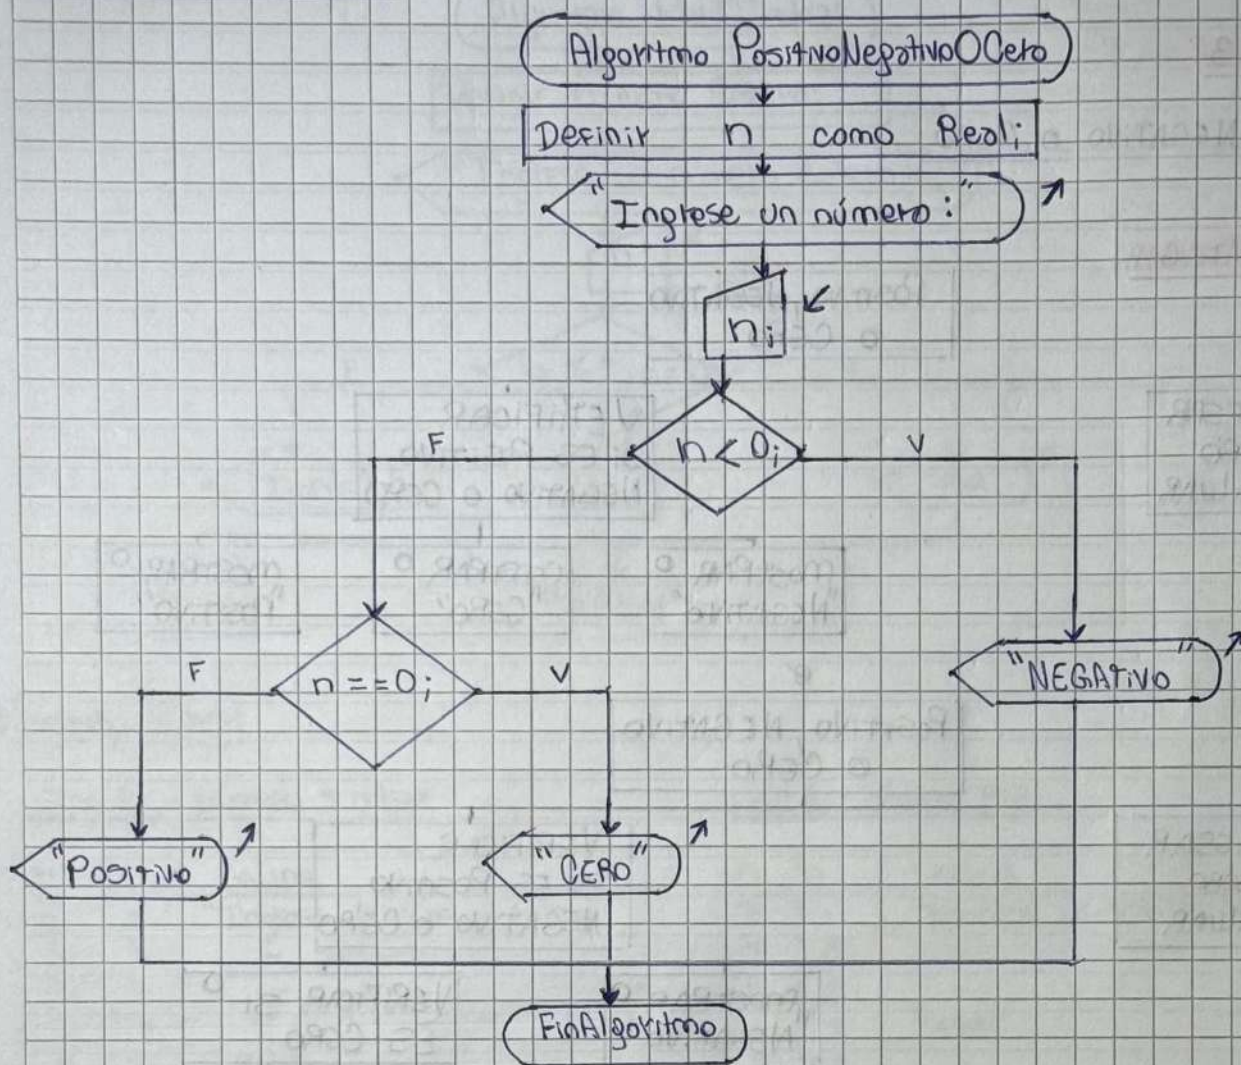 Algoritmo PositivoNegativoOCero
Definir n como Real;
"Ingrese un número:"
n;
n < 0;
F
V
n == 0;
F
V
"NEGATIVO"
"POSITIVO"
"CERO"
FinAlgoritmo